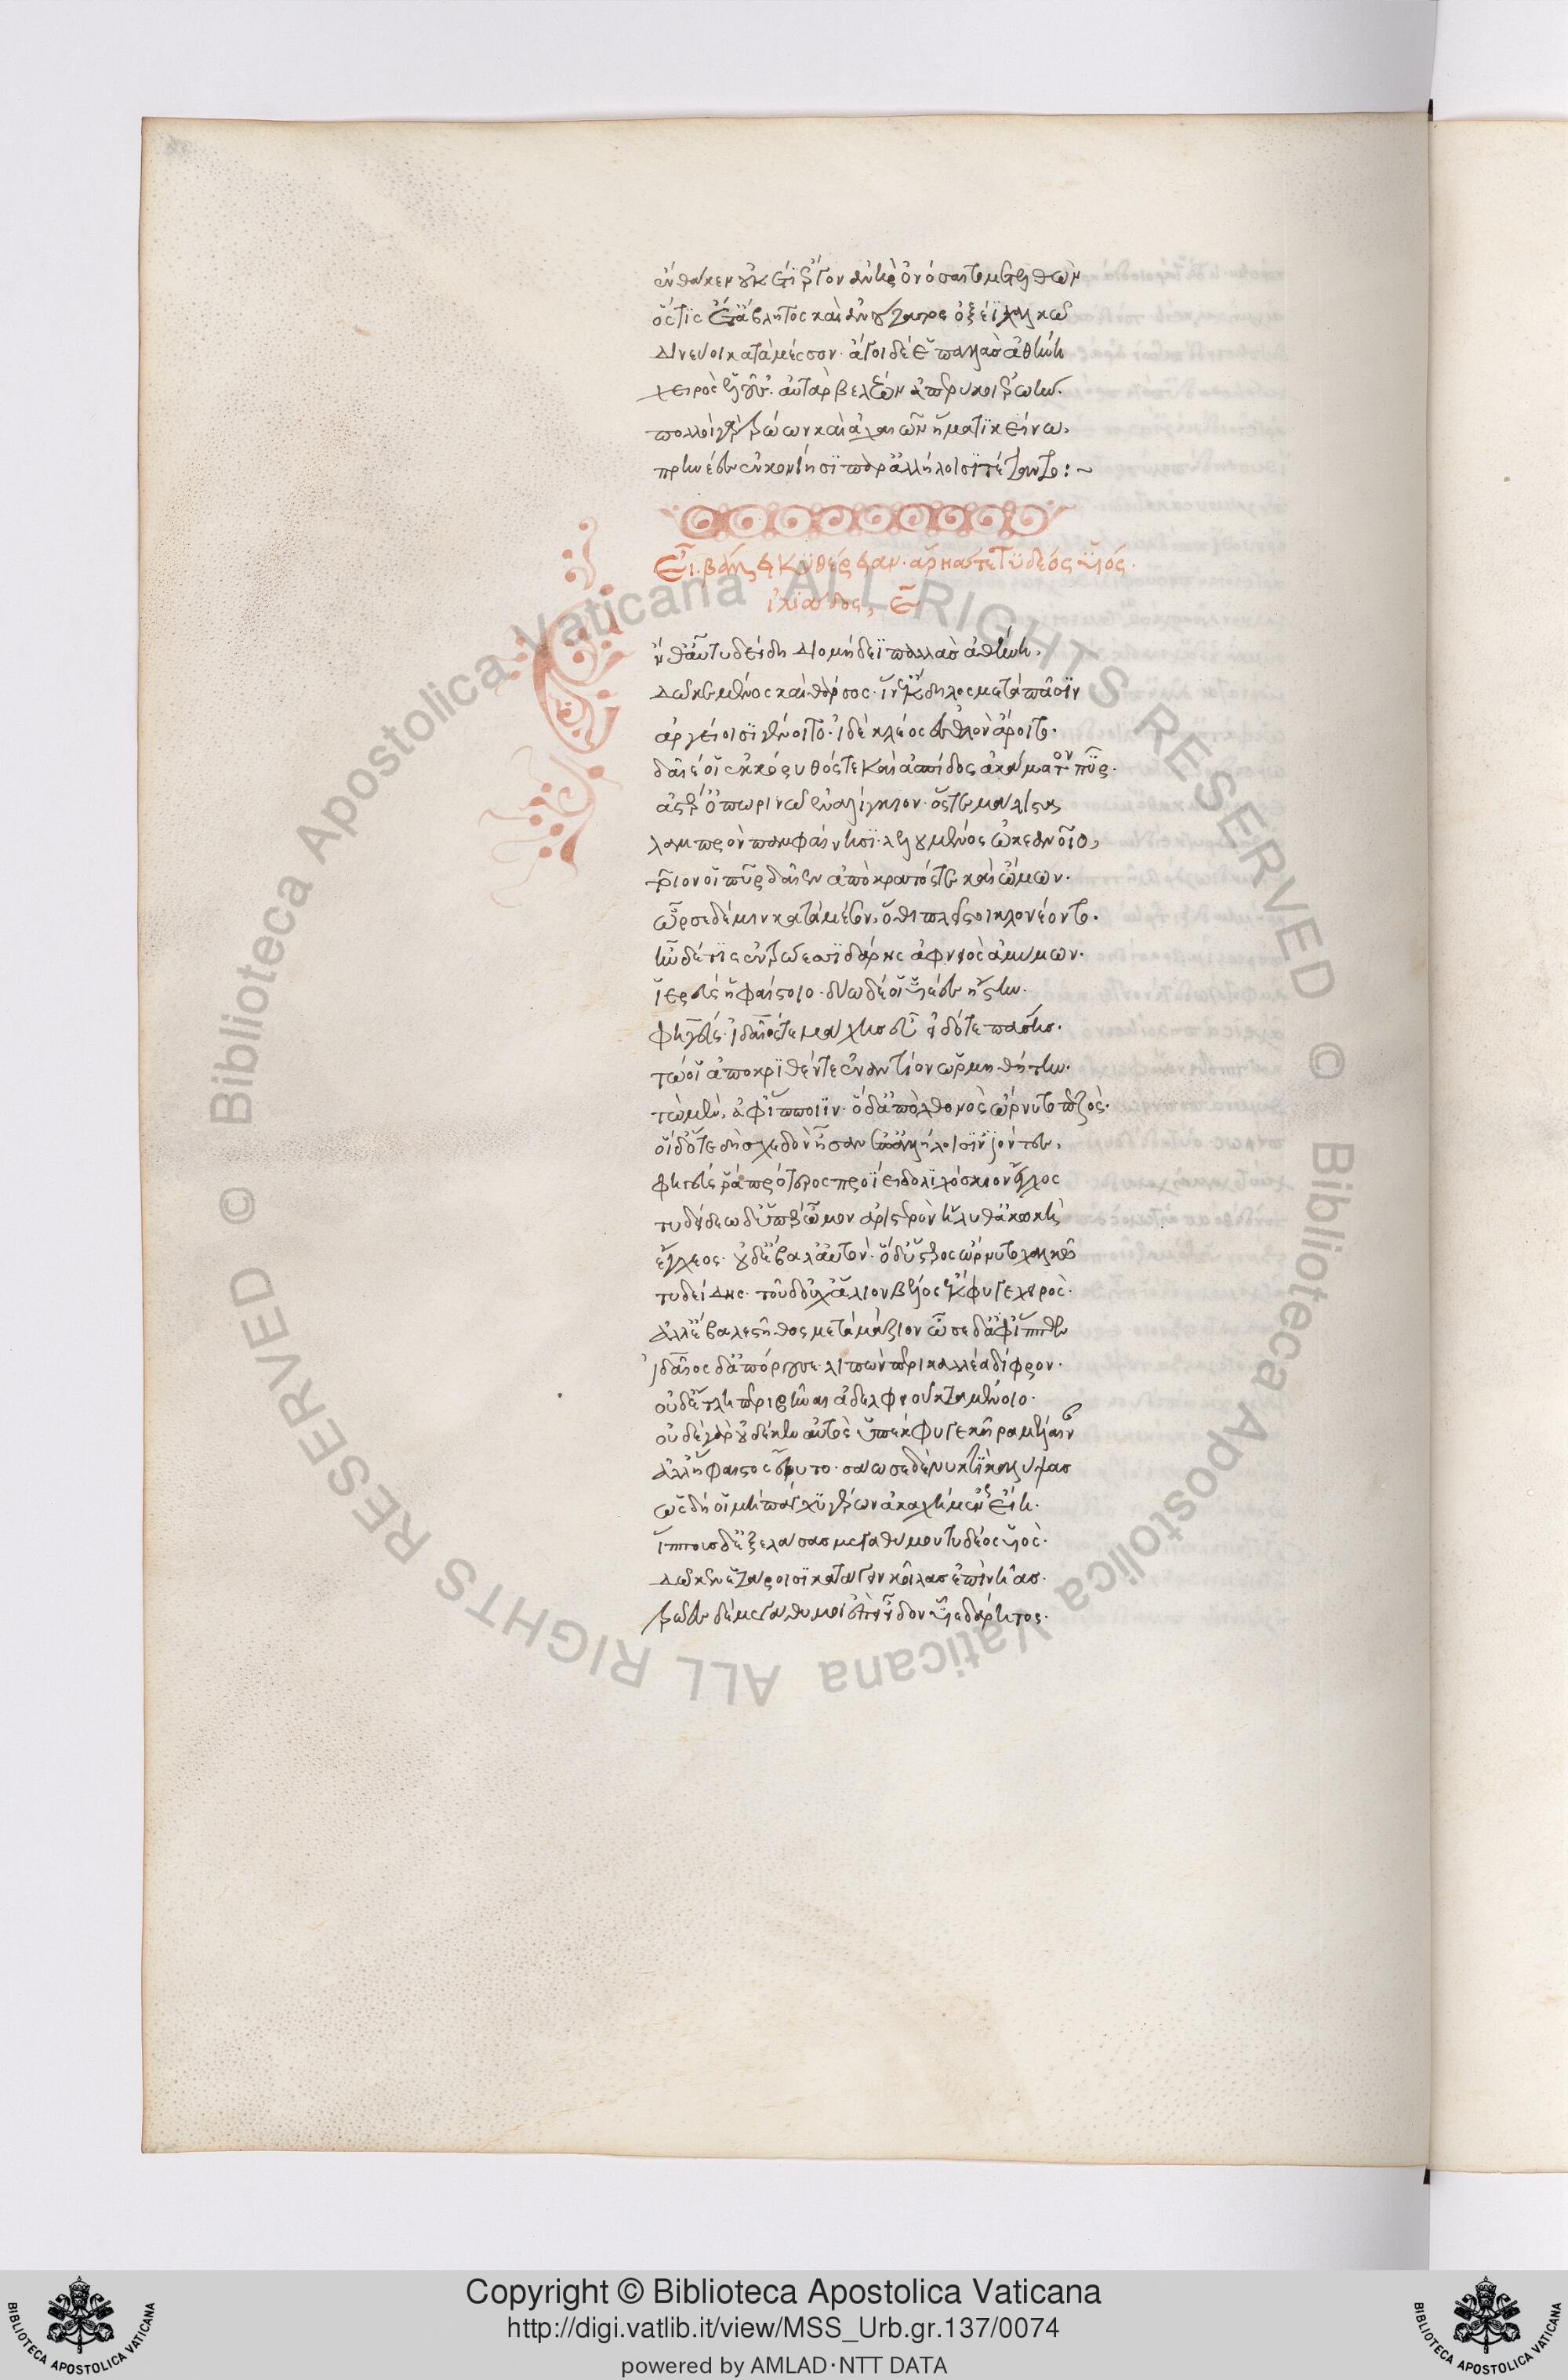 ἔνθα κεν οὐκέτι ἔργον ἀνὴρ ὀνόσαιτο μετελθών
ὅστις ἔτ' ἄβλητος καὶ ἀνούτατος ὀξέϊ χαλκῷ
δινεύοι κατὰ μέσσον. ἄγοι δέ ἑ παλλὰς ἀθήνη
χειρὸς ἑλοῦσ'. αὐτὰρ βελέων ἀπερύκοι ἐρωήν.
πολλοὶ γὰρ τρώων καὶ ἀχαιῶν ἤματι κείνω,
πρηνέες ἐν κονίῃσι παρ' ἀλλήλοισι τέταντο:~
Εἶ. βάλλει Κυθέρειαν. ἄρηα τε Τυδέος υἱός.
ἰλιάδος, Ε
νθ' αὖ τυδείδη Διομήδεϊ παλλὰς ἀθήνη,
δῶκε μένος καὶ θάρσος. ἵν' ἔκδηλος μετὰ πᾶσιν
ἀργείοισι γένοιτο. ἰδὲ κλέος ἐσθλὸν ἄροιτο.
δαῖέ οἱ ἐκ κόρυθός τε καὶ ἀσπίδος ἀκάματον πῦρ.
ἀστέρ' ὀπωρινῷ ἐναλίγκιον. ὅς τε μάλιστα
λαμπρὸν παμφαίνησι. λελουμένος ὠκεανοῖο,
τοῖόν οἱ πῦρ δαῖεν ἀπὸ κρατός τε καὶ ὤμων.
ὦρσε δέ μιν κατὰ μέσον, ὅθι πλεῖστοι κλονέοντο.
ἦν δέ τις ἐν τρώεσσι δάρης ἀφνειὸς ἀμύμων.
ἱερεὺς ἡφαίστοιο. δύω δέ οἱ υἱέες ἤστην.
φηγεύς. ἰδαῖός τε μάχης εὖ εἰδότε πάσης.
τώ οἱ ἀποκριθέντε ἐναντίον ὡρμηθήτην.
τὼ μὲν, ἀφ' ἵπποιϊν. ὁ δ' ἀπὸ χθονὸς ὤρνυτο πεζός.
οἱ δ' ὅτε δὴ σχεδὸν ἦσαν ἐπ' ἀλλήλοισιν ἰόντες,
φηγεύς ῥα πρότερος προΐει δολιχόσκιον ἔγχος
τυδείδεω δ' ὑπὲρ ὦμον ἀριστερὸν ἤλυθ' ἀκωκὴ
ἔγχεος. οὐδ' ἔβαλ' αὐτόν. ὁ δ' ὕστερος ὤρνυτο χαλκῷ
τυδείδης. τοῦ δ' οὐχ ἅλιον βέλος ἔκφυγε χειρός.
ἀλλ' ἔβαλε στῆθος μεταμάζιον ὦσε δ' ἀφ' ἵππων
ἰδαῖος δ' ἀπόρουσε. λιπὼν περικαλλέα δίφρον.
οὐδ' ἔτλη περιβῆναι ἀδελφειοῦ κταμένοιο.
οὐδὲ γὰρ οὐδέ κεν αὐτὸς ὑπέκφυγε κῆρα μέλαιναν
ἀλλ' ἥφαιστος ἔρυτο. σάωσε δὲ νυκτὶ καλύψας
ὡς δή οἱ μὴ πάγχυ γέρων ἀκαχήμενος εἴη.
ἵππους δ' ἐξελάσας μεγαθύμου τυδέος υἱός.
δῶκεν ἑταίροισι κατάγειν κοίλας ἐπὶ νῆας.
τρῶες δὲ μεγάθυμοι ἐπεὶ εἶδον υἷε δάρητος.
Copyright © Biblioteca Apostolica Vaticana
http://digi.vatlib.it/view/MSS_Urb.gr.137/0074
powered by AMLAD·NTT DATA